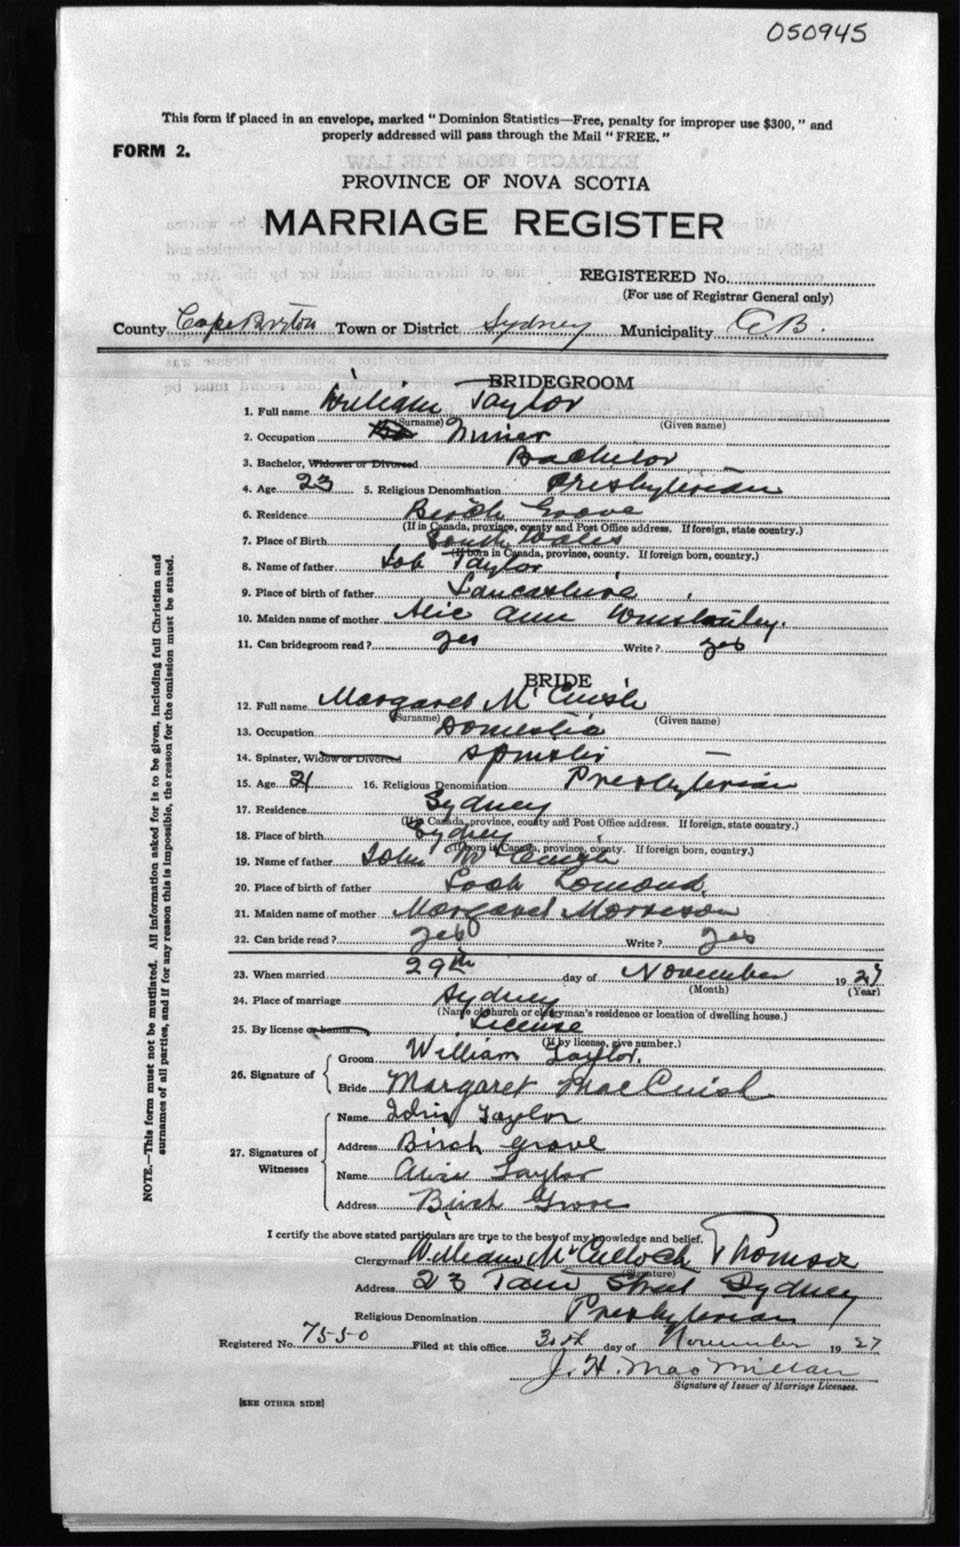 050945
This form if placed in an envelope, marked "Dominion Statistics—Free, penalty for improper use $300," and
properly addressed will pass through the Mail "FREE."
FORM 2.
PROVINCE OF NOVA SCOTIA
MARRIAGE REGISTER
REGISTERED No.
(For use of Registrar General only)
County Cape Breton Town or District Sydney Municipality C.B.
BRIDEGROOM
1. Full name William Taylor
(Surname) (Given name)
2. Occupation Miner
3. Bachelor, Widower or Divorced Bachelor
4. Age 23 5. Religious Denomination Presbyterian
6. Residence Birch Grove
(If in Canada, province, county and Post Office address. If foreign, state country.)
7. Place of Birth South Wales
(If born in Canada, province, county. If foreign born, country.)
8. Name of father Job Taylor
9. Place of birth of father Lancashire
10. Maiden name of mother Alic Ann Winstanley.
11. Can bridegroom read? yes Write? yes
BRIDE
12. Full name Margaret McCuish
(Surname) (Given name)
13. Occupation Domestic
14. Spinster, Widow or Divorced Spinster —
15. Age 21 16. Religious Denomination Presbyterian
17. Residence Sydney
(If in Canada, province, county and Post Office address. If foreign, state country.)
18. Place of birth Sydney
(If born in Canada, province, county. If foreign born, country.)
19. Name of father John McCuish
20. Place of birth of father Loch Lomond.
21. Maiden name of mother Margaret Morrison
22. Can bride read? yes Write? yes
23. When married 29th day of November 1927
(Month) (Year)
24. Place of marriage Sydney
(Name of church or clergyman's residence or location of dwelling house.)
25. By license or banns License
(If by license, give number.)
26. Signature of
Groom William Taylor.
Bride Margaret MacCuish
27. Signatures of Witnesses
Name Idris Taylor
Address Birch Grove
Name Alice Taylor
Address Birch Grove
I certify the above stated particulars are true to the best of my knowledge and belief.
Clergyman William McCulloch Thomson
(Signature)
Address 23 Street Sydney
Religious Denomination Presbyterian
Registered No. 7550 Filed at this office 30th day of November 1927
J. H. MacMillan
Signature of Issuer of Marriage Licenses.
[SEE OTHER SIDE]
NOTE.—This form must not be mutilated. All information asked for is to be given, including full Christian and
surnames of all parties, and if for any reason this is impossible, the reason for the omission must be stated.